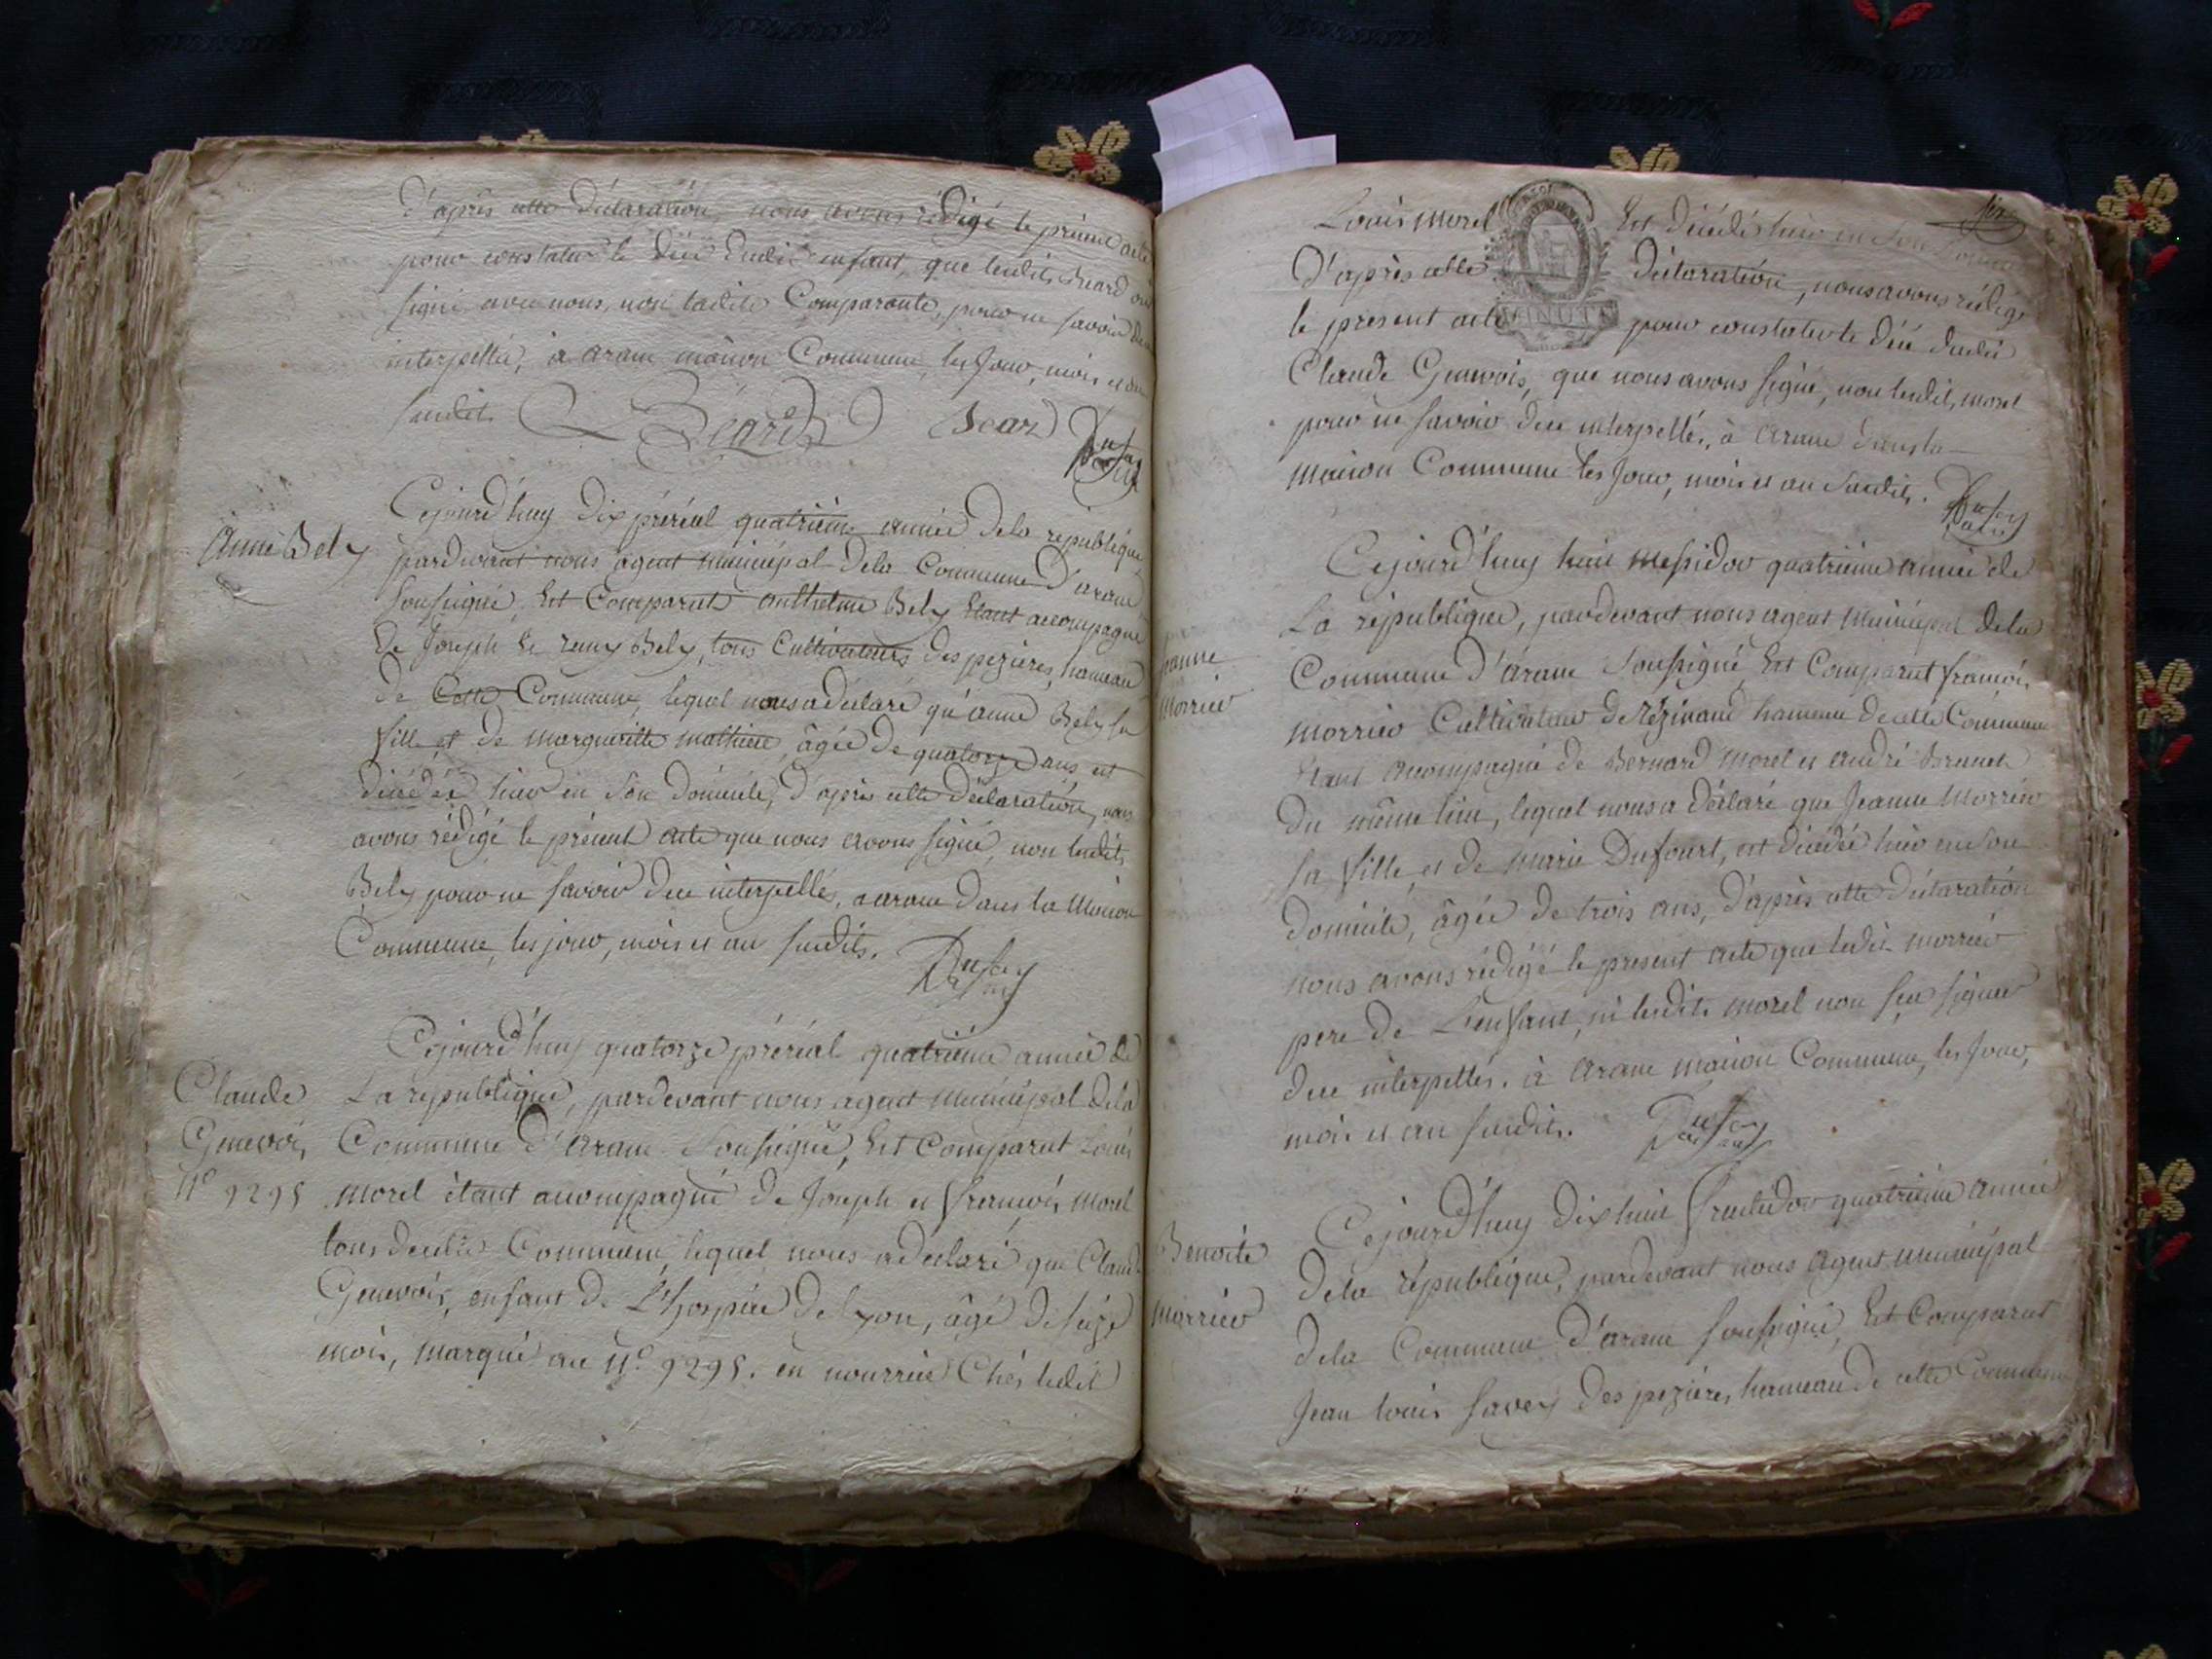 D'après cette déclaration, nous avons rédigé le présent acte
pour constater le décé dudit enfant, que lesdits Beard ont
signé avec nous, non ladite Comparante, pour ne savoir de ce
interpellée, à arane maison Commune, les jour, mois et an
susdits. Béard Bear Dufay
Anne Bely
Cejourd'huy dix préréal quatrième année de la république
pardevant nous agent municipal de la Commune d'arane
soussigné, Est Comparut anthelme Bely Etant accompagné
de Joseph et remy Bely, tous Cultivateurs des pezières, hameau
de Cette Commune, lequel nous a déclaré qu'anne Bely sa
fille et de margueritte mathieu, âgée de quatorze ans est
décédée hier en son domicile, d'après cette déclaration, nous
avons rédigé le présent acte que nous avons signé, non lesdits
Bely pour ne savoir de ce interpellés, a arane dans la Maison
Commune, les jour, mois et an susdits.
Dufay
Claude
Genevois
N.° 9295
Cejourd'huy quatorze préréal quatrième année de
La republique, pardevant nous agent municipal de la
Commune d'arane soussigné, Est Comparut Louis
morel étant accompagné de Joseph et françois morel
tous de cette Commune, lequel nous a déclaré que Claude
Genevois, enfant de L'hospice de lyon, âgé de seize
mois, marqué au N.° 9295. en nourrice Chés ledit
Louis morel Est décédé hier en son
D'après cette déclaration, nous avons rédigé
le present acte pour constater le décé dudit
Claude Genevois, que nous avons signé, non lesdits morel
pour ne savoir de ce interpellés, à arane dans la
maison Commune les jour, mois et an susdits. Dufay
MINUTE
Jeanne
Morrier
Cejourd'huy huit messidor quatrième année de
La république, pardevant nous agent municipal de la
Commune d'arane soussigné, Est Comparut françois
morrier Cultivateur de Rézinand hameau de cette Commune
Etant accompagné de Bernard morel et andré Brunet
du même lieu, lequel nous a déclaré que Jeanne Morrier
sa fille et de marie Dufourt, est décédée hier en son
domicile, âgée de trois ans, d'après cette déclaration
nous avons rédigé le present acte que ledit morrier
pere de L'enfant, ni lesdits morel non seu signer
de ce interpellés. à arane maison Commune, les jour,
mois et an susdits. Dufay
Benoite
morrier
Cejourd'huy dix huit fructidor quatrième année
de la république, pardevant nous agent municipal
de la Commune d'arane soussigné, Est Comparut
Jean louis savey des pezières, hameau de cette Commune